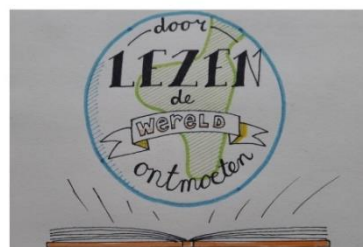 door
LEZEN
de
WERELD
ontmoeten